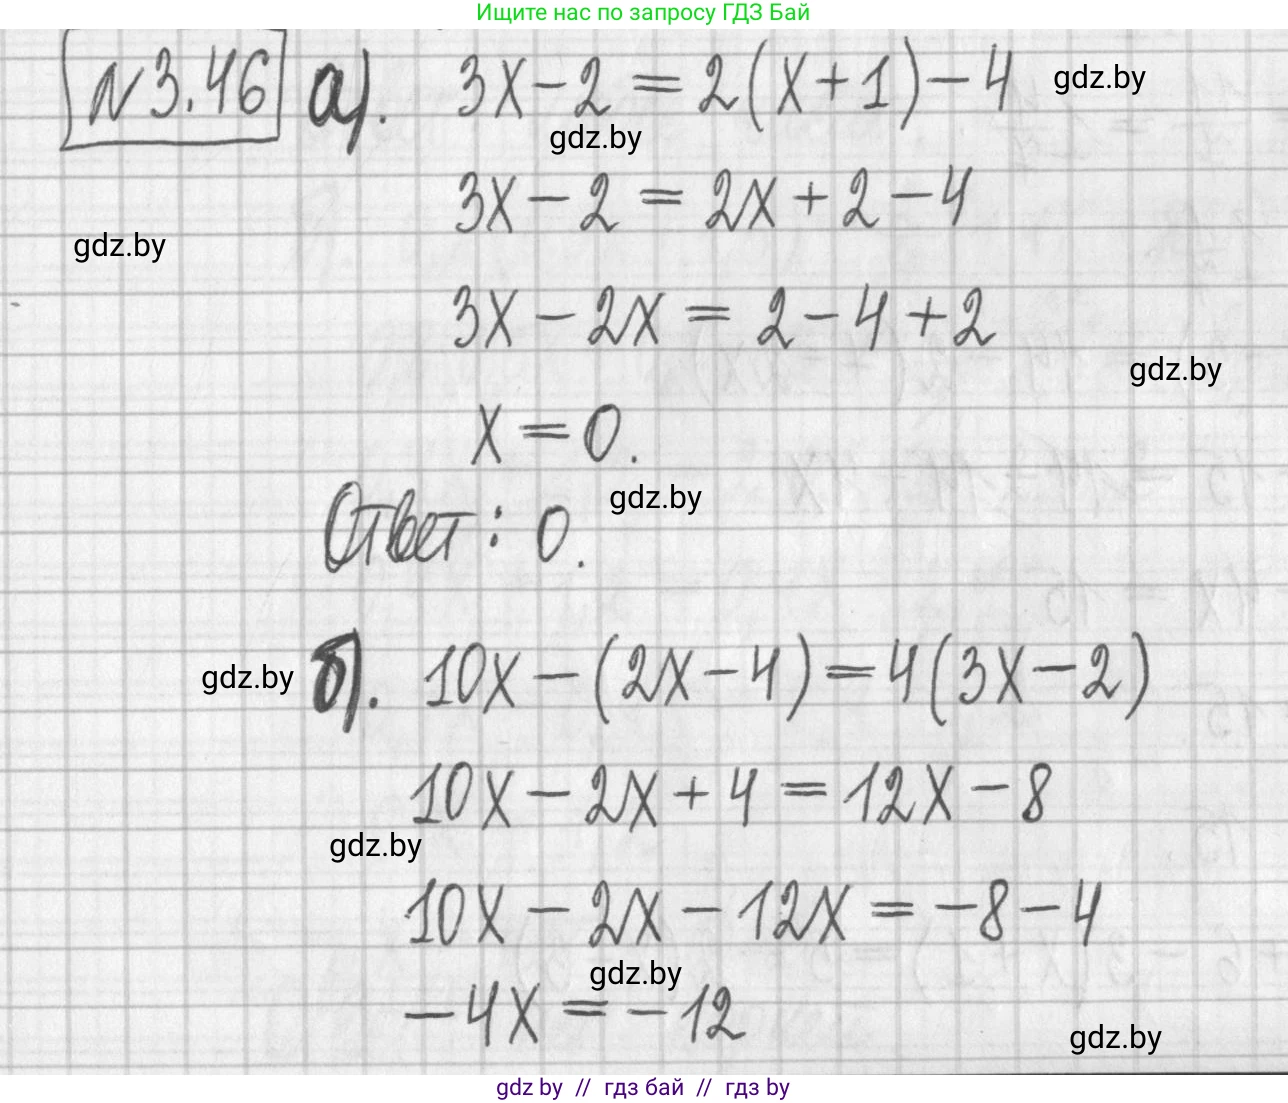 Ищите нас по запросу ГДЗ Бай
N 3.46 а). 3x - 2 = 2(x + 1) - 4 gdz.by
gdz.by
3x - 2 = 2x + 2 - 4
gdz.by
3x - 2x = 2 - 4 + 2
gdz.by
x = 0.
gdz.by
Ответ: 0.
gdz.by б). 10x - (2x - 4) = 4(3x - 2)
10x - 2x + 4 = 12x - 8
gdz.by
10x - 2x - 12x = -8 - 4
gdz.by
-4x = -12
gdz.by
gdz by // гдз бай // гдз by